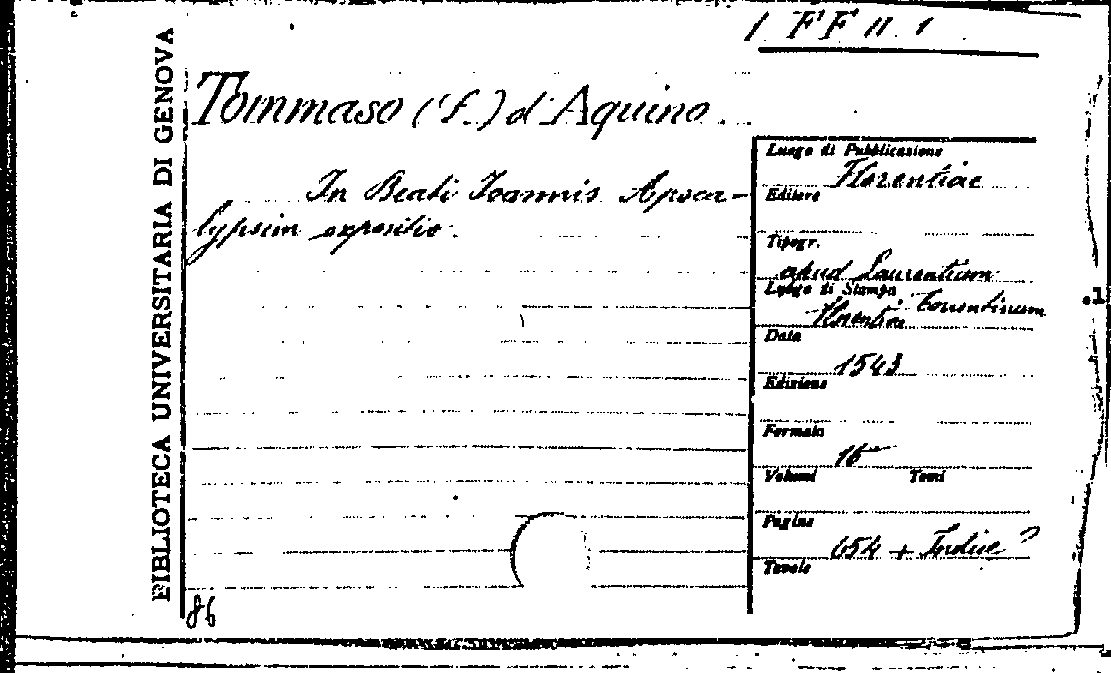 1 FF II 1
BIBLIOTECA UNIVERSITARIA DI GENOVA
Tommaso (S.) d'Aquino
In Beati Ioannis Apoca-
lypsim expositio.
Luogo di Pubblicazione
Florentiae
Editore
Tipogr.
apud Laurentium
Torrentinum
Luogo di Stampa
Florentiae
Data
1543
Edizione
Formato
16
Volumi Tomi
Pagine
654 + Indice
Tavole
86
.1